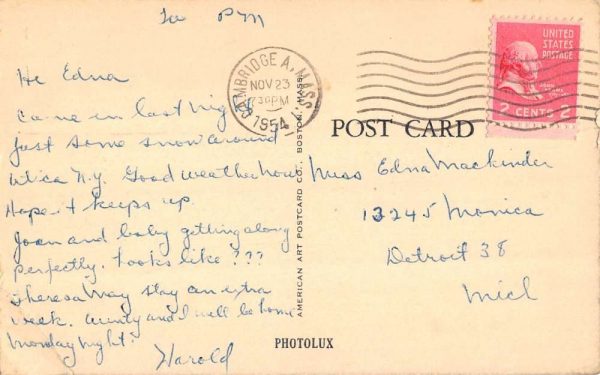 To PM
Hi Edna
Came in last night
just some snow around
Utica N.Y. Good weather now
Hope it keeps up
Joan and baby getting along
perfectly. Looks like ???
Theresa may stay an extra
week. Aunty and I will be home
Monday night.
Harold
CAMBRIDGE A, MASS
NOV 23
730PM
1954
UNITED
STATES
POSTAGE
JOHN
ADAMS
2 CENTS 2
POST CARD
Miss Edna Mackinder
13245 Monica
Detroit 38
Mich
AMERICAN ART POSTCARD CO., BOSTON, MASS.
PHOTOLUX